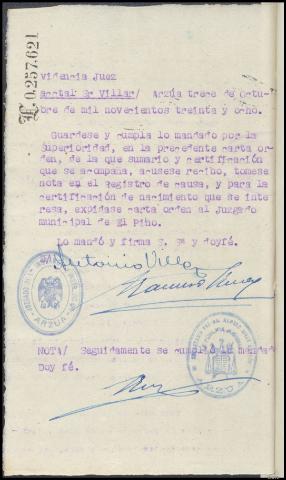 Lº.0.257.621
videncia Juez
acctal Sr Villar/ Arzúa trece de Octu-
bre de mil novecientos treinta y ocho.
Guardese y cumpla lo mandado por la
superioridad, en la precedente carta or-
den, de la que sumario y certificación
que se acompaña, acusese recibo, tomese
nota en el registro de causa, y para la
certificación de nacimiento que se inte
resa, expidase carta orden al Juzgado
municipal de El Piño.
Lo mandó y firma S. Sª y doyfé.
Antonio Villar
ARZUA
NOTA/ Seguidamente se cumple lo mandado
Doy fé.
ARZUA